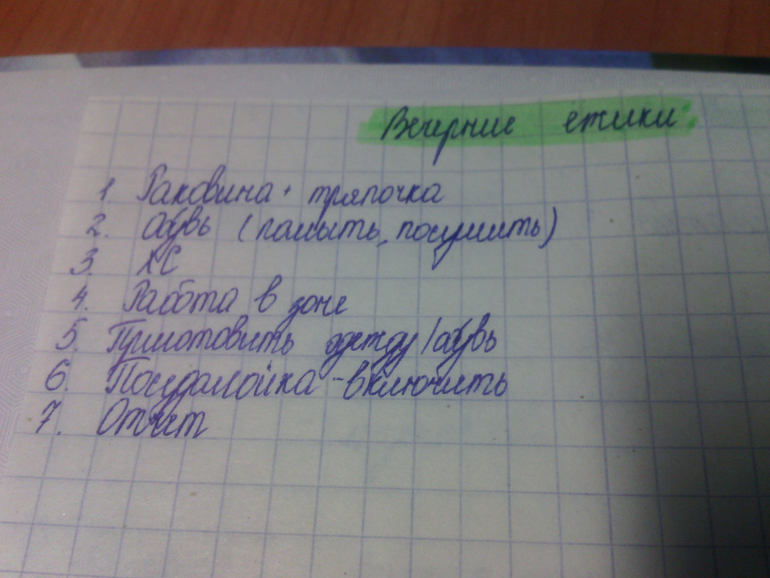 Вечерние етики
1. Раковина + тряпочка
2. Обувь (помыть, посушить)
3. КС
4. Работа в зоне
5. Приготовить одежду/обувь
6. Посудамойка - включить
7. Отчет